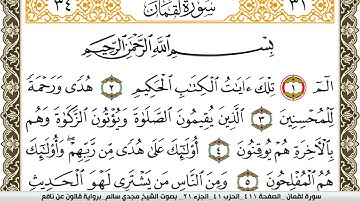 ٣٤ سُورَةُ لُقْمَانَ ٣١
بِسْمِ اللَّهِ الرَّحْمَٰنِ الرَّحِيمِ
الٓمٓ ١ تِلْكَ ءَايَٰتُ الْكِتَٰبِ الْحَكِيمِ ٢ هُدًى وَرَحْمَةً
لِّلْمُحْسِنِينَ ٣ الَّذِينَ يُقِيمُونَ الصَّلَوٰةَ وَيُؤْتُونَ الزَّكَوٰةَ وَهُم
بِالْأَخِرَةِ هُمْ يُوقِنُونَ ٤ أُوْلَٰٓئِكَ عَلَىٰ هُدًى مِّن رَّبِّهِمْ وَأُوْلَٰٓئِكَ
هُمُ الْمُفْلِحُونَ ٥ وَمِنَ النَّاسِ مَنْ يَشْتَرِى لَهْوَ الْحَدِيثِ
سورة لقمان _ الصفحة ٤١١ _ الحزب ٤١ _ الجزء ٢١ _ بصوت الشيخ مجدي سالم _ برواية قالون عن نافع